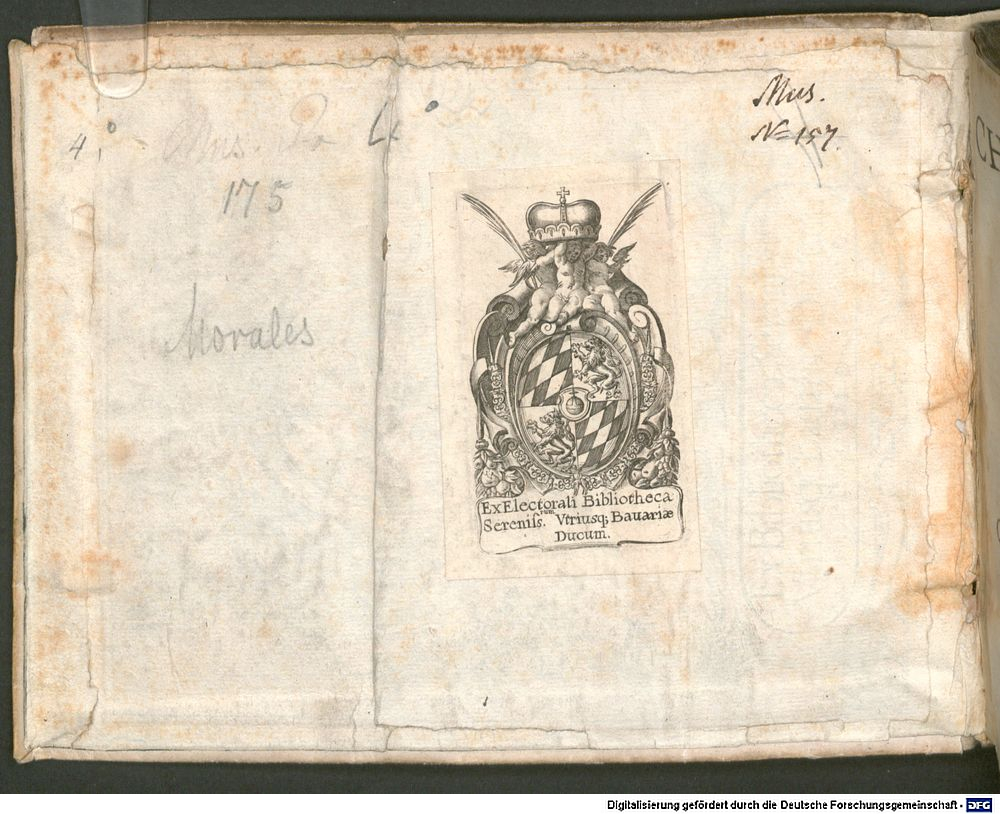 Mus.
N= 157.
4°
Mus. Pr.
175
Morales
Ex Electorali Bibliotheca
Sereniſs.rum Vtriusq; Bauariæ
Ducum.
CH
Digitalisierung gefördert durch die Deutsche Forschungsgemeinschaft - DFG